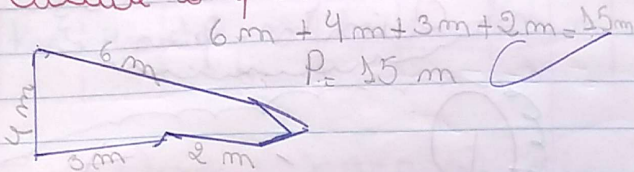 6 m + 4 m + 3 m + 2 m = 15 m
P = 15 m
6 m
4 m
3 m
2 m